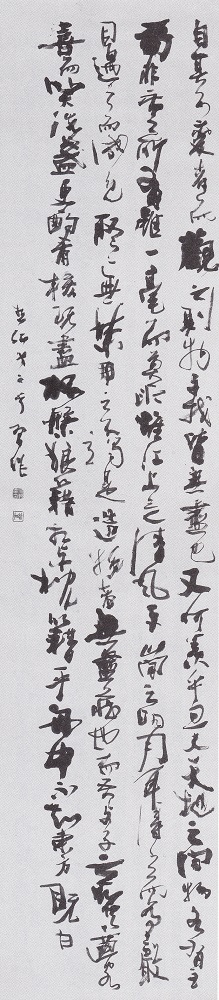 自其不變者而觀之則物我皆無盡也又何羨乎且夫天地之間物各有主
而非吾之所有雖一毫而莫取惟江上之清風與山間之明月耳得之而為聲
目遇之而成色取之無禁用之不竭是造物者無盡藏也而吾與子之所共適客
喜而笑洗盞更酌肴核既盡杯盤狼籍相與枕籍乎舟中不知東方既白